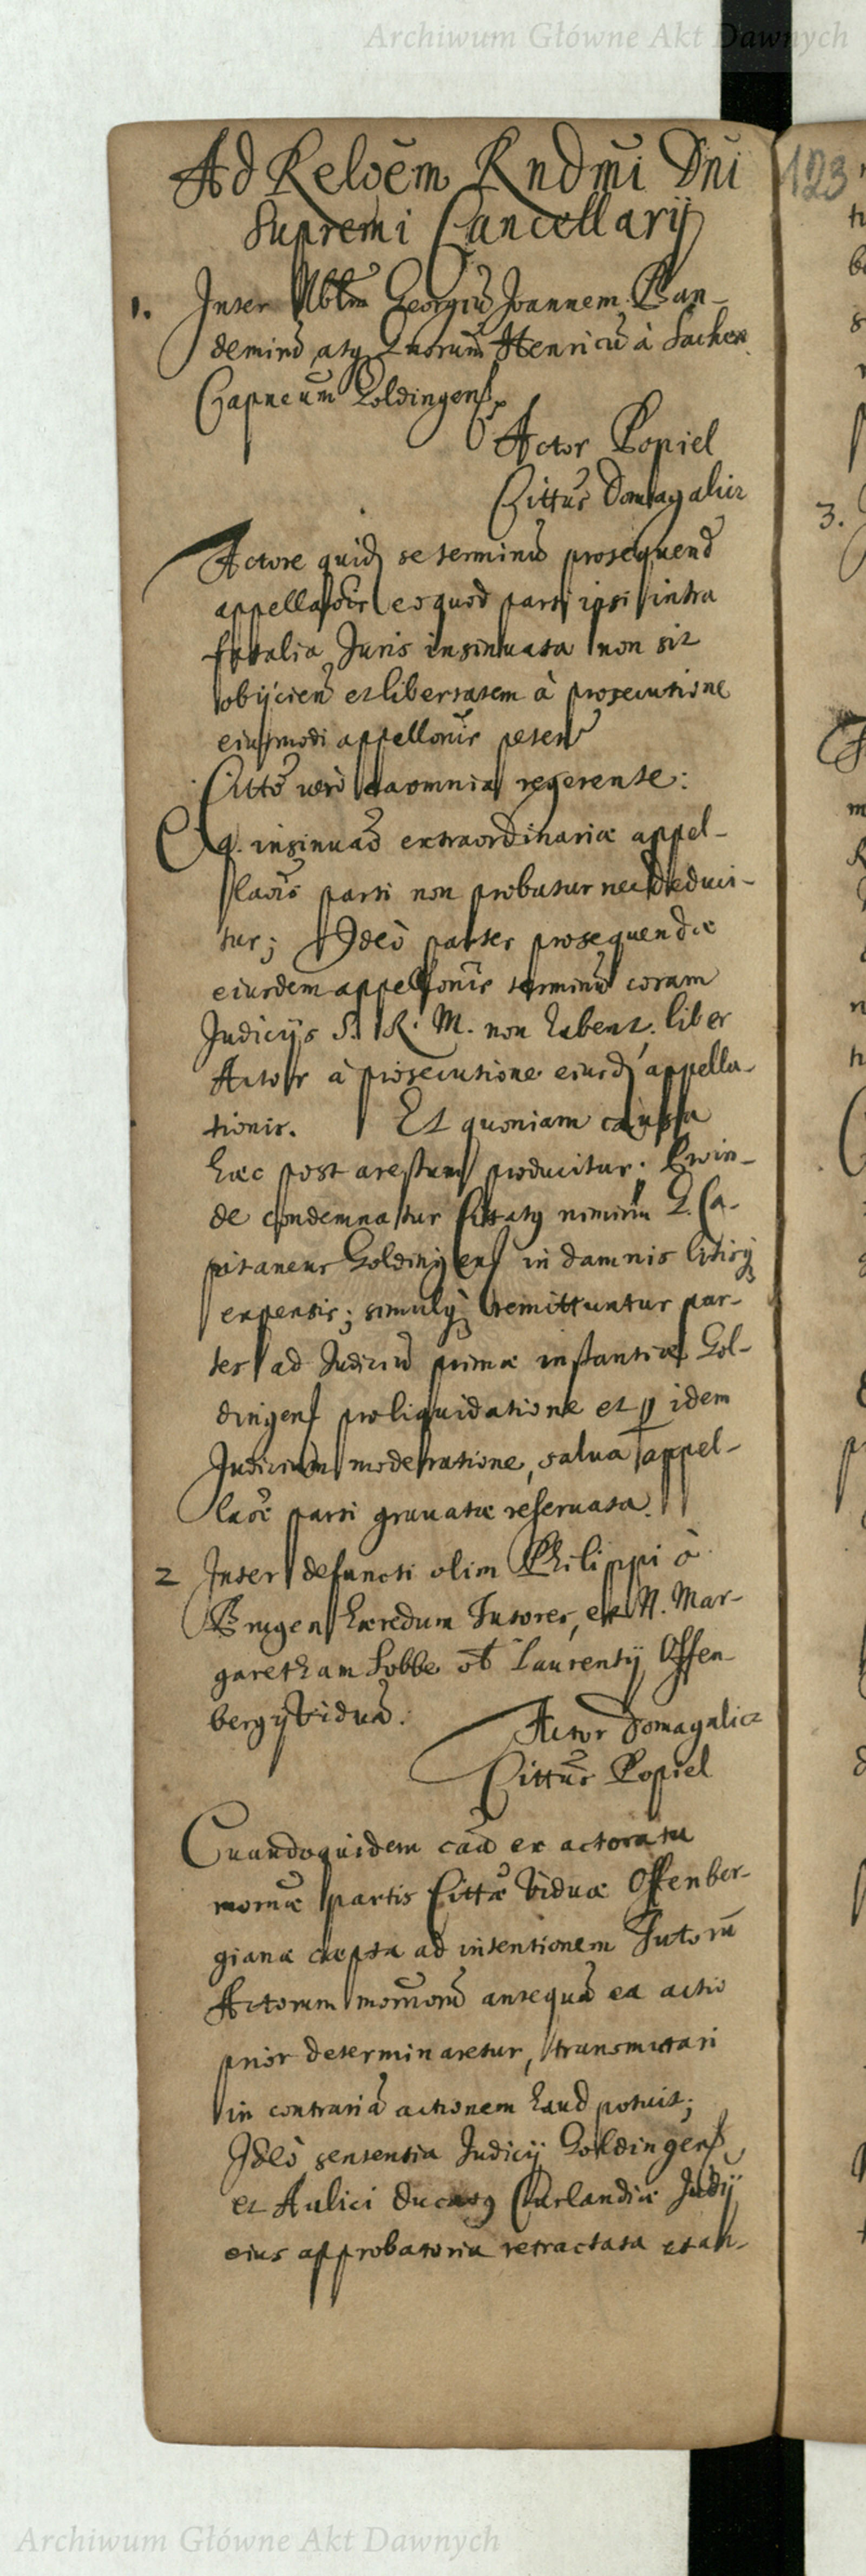 Archiwum Główne Akt Dawnych
Ad Relõem Rndmi Dni
Supremi Cancellarij
123
1. Inter Nblm Georgiũ Joannem Ban-
deminũ atq Henricũ à Sacken
Capneum Goldingens
Actor Popiel
Cittus Domagalicz
Actore quid se terminũ prosequend
appellatõis eo quod parti ipsi intra
fatalia Juris insinuata non sit
obijcien et libertatem à prosecutione
eiusmodi appellonis peten
Citto verò ea omnia regerente:
Qq. insinuaõ extraordinariæ appel-
laõis parti non probatur nec deduci-
tur; Ideò partes prosequendæ
eiusdem appellonis terminũ coram
Judicijs S. R. M. non habent. liber
Actor à prosecutione eiusd appella-
tionis. Et quoniam causa
hæc post arestum producitur; Proin-
de condemnatur Cittatq nimirũ G. Ca-
pitaneus Goldingens in damnis litisq
expensis; simulq remittuntur par-
tes ad Judiciũ primæ instantiæ Gol-
dingens pro liquidatione et p idem
Judicium moderatione, salva appel-
laõe parti gravatæ reservata.
2 Inter defuncti olim Philippi à
Brugen hæredum Tutores, et N. Mar-
garetham Lobbe ol Laurentij Offen-
bergij Viduã.
Actor Domagalicz
Cittus Popiel
Quandoquidem caũ ex actoratu
partis Cittæ Viduæ Offenber-
gianæ cæpta ad intentionem Tutorũ
Actorum antequã ea actio
prior determinaretur, transmutari
in contrariã actionem haud potuit;
Ideò sententia Judicij Goldingens
et Aulici Ducatq Curlandiæ Judij
eius approbatoria retractata
3.
Archiwum Główne Akt Dawnych